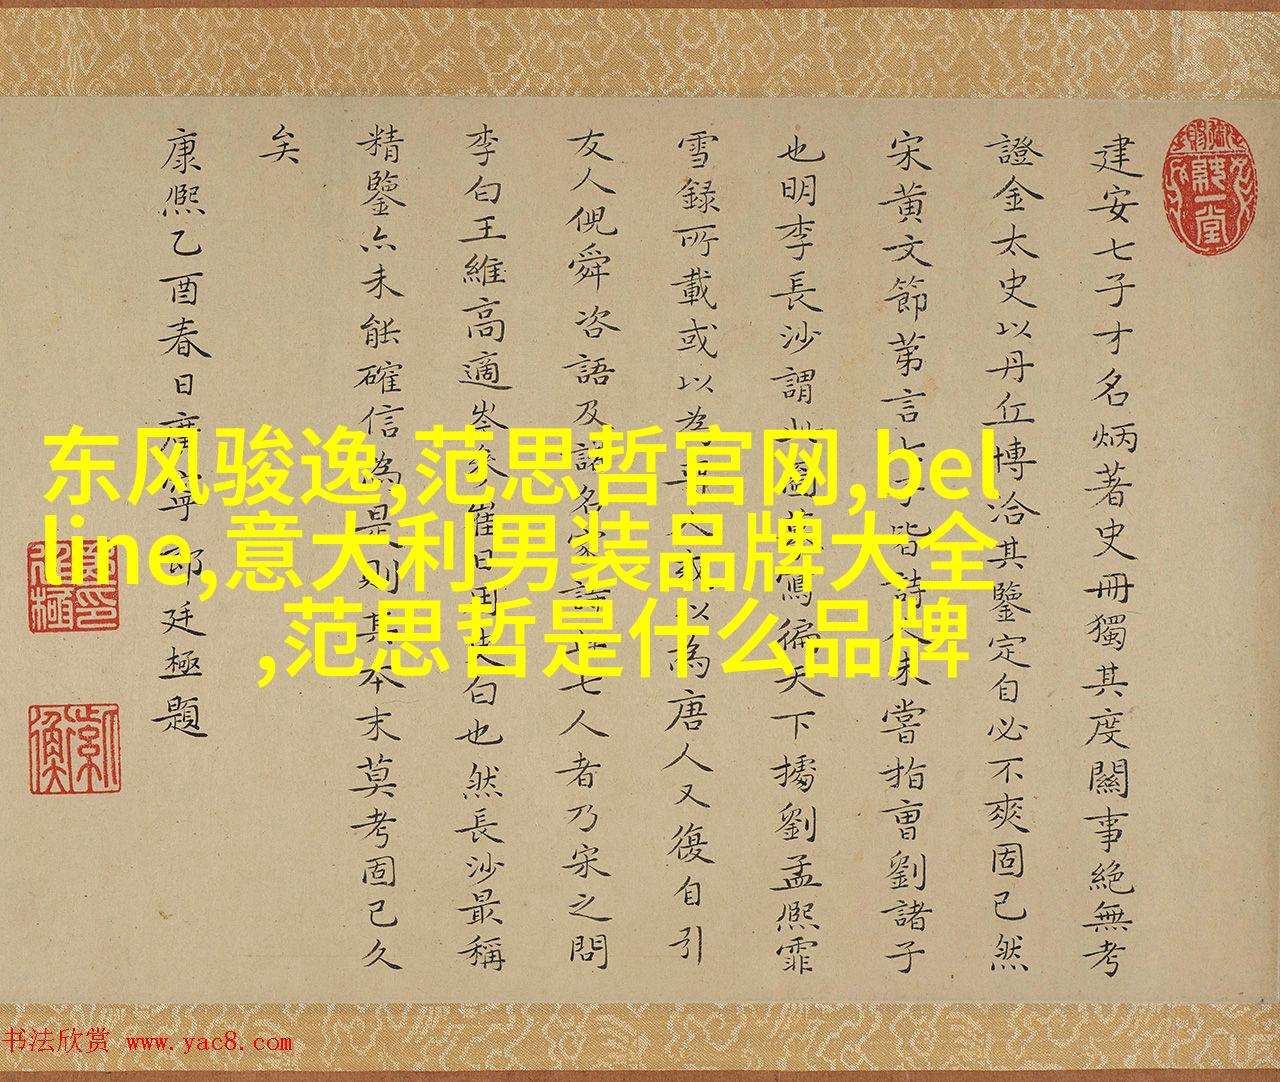 建安七子才名炳著史冊獨其度關事絕無考
證金太史以丹丘博洽其鑒定自必不爽固已然
宋黃文節第言七子皆詩人未嘗指曹劉諸子
也明李長沙謂此圖寫徧天下攄劉孟熙霏
雪録所載或以為晉人或以為唐人又復自引
友人倪舜咨語及諸名家詩七人者乃宋之問
李白王維高適岑參崔日用白也然長沙最稱
精鑒亦未能確信為是則其本末莫考固已久
矣
康熙乙酉春日廣寧郎廷極題
东风骏逸,范思哲官网,bel
line,意大利男装品牌大全
,范思哲是什么品牌
书法欣赏 www.yac8.com